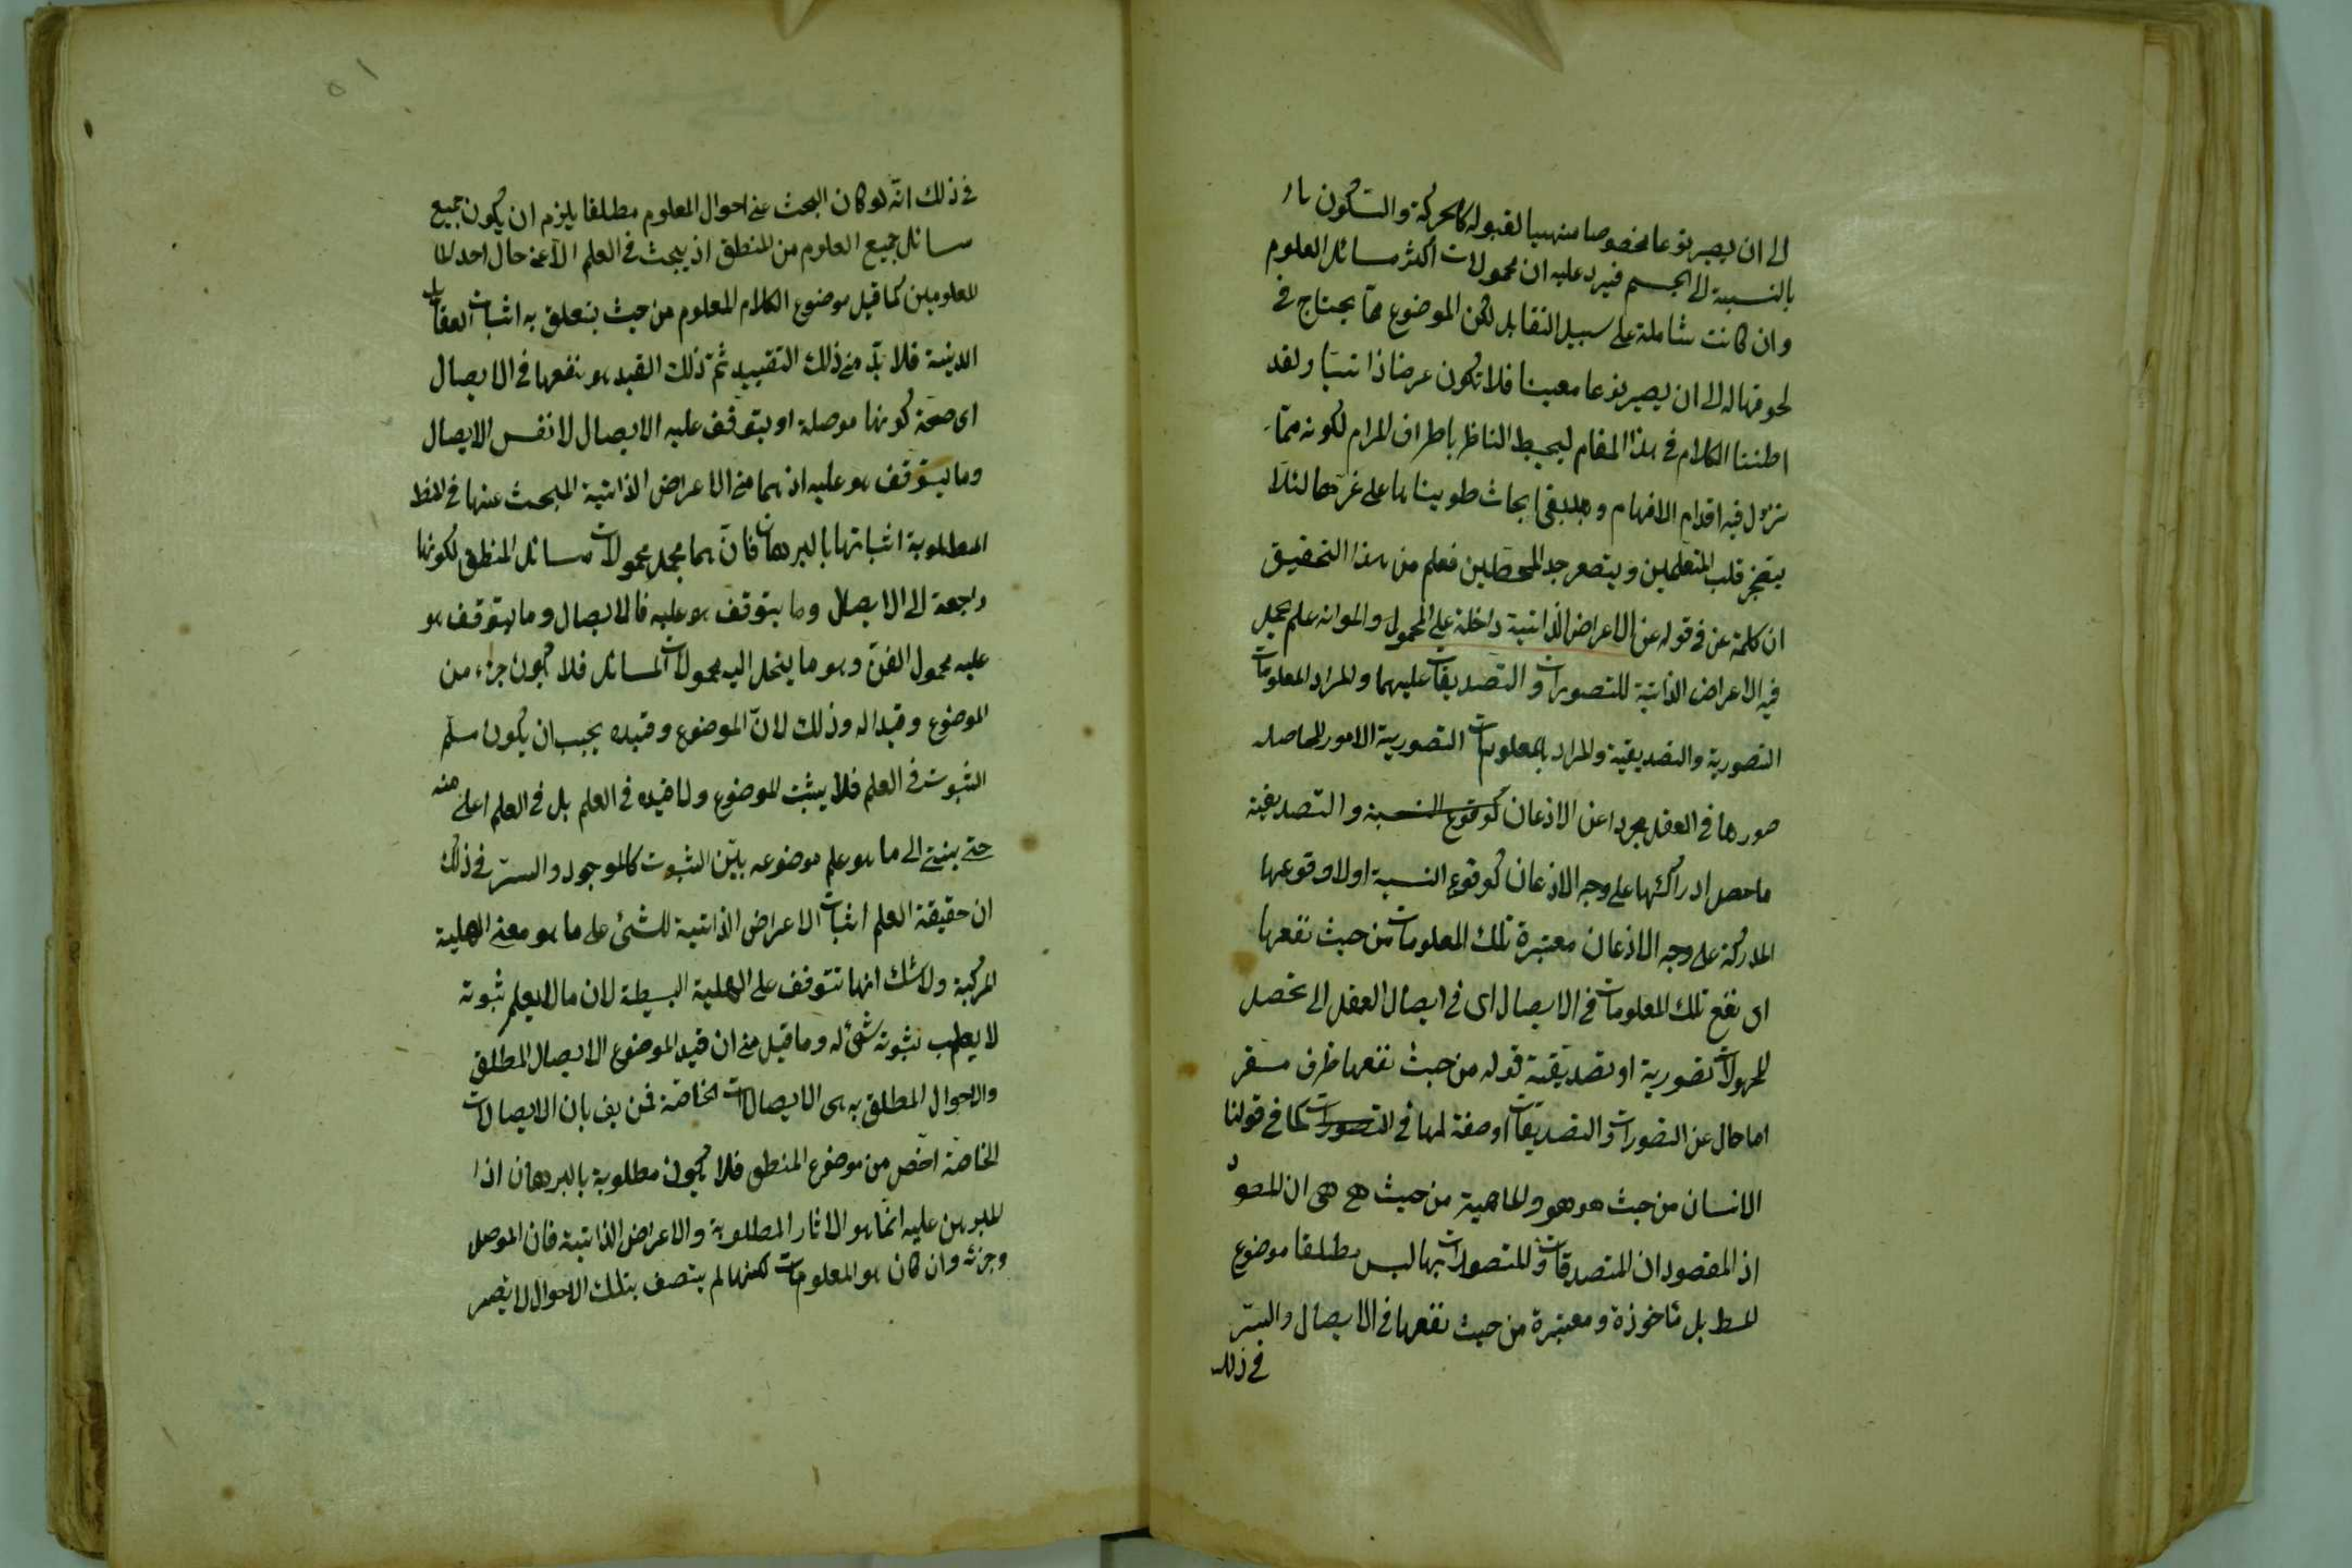 الى ان يصير نوعا مخصوصا متهيبا لقبوله كالحركة والسكون
بالنسبة الى الجسم فيرد عليه ان محمولات اكثر مسائل العلوم
وان كانت شاملة على سبيل التقابل لكن الموضوع مما يحتاج في
لحوقها له الى ان يصير نوعا معينا فلا تكون عرضا ذاتيا ولقد
اطنبنا الكلام في هذا المقام ليحيط الناظر باطراف المرام لكونه مما
تزول فيه اقدام الافهام وقد بقى ابحاث طويناها على غرها لئلا
يتضجر قلب المتعلمين ويتصعر خد المحصلين فعلم من هذا التحقيق
ان كلمة عن في قوله عن الاعراض الذاتية داخلة على المحمول والمراد انه علم يحمل
فيه الاعراض الذاتية للتصورات والتصديقات عليهما والمراد المعلومات
التصورية والتصديقية والمراد بالمعلومات التصورية الامور الحاصلة
صورها في العقل مجردا عن الاذعان كوقوع النسبة والتصديقية
ما حصل ادراكها على وجه الاذعان كوقوع النسبة اولا وقوعها
المدركة على وجه الاذعان معتبرة تلك المعلومات من حيث نفعها
اى نفع تلك المعلومات في الايصال اى في ايصال العقل الى تحصل
المجهولات تصورية او تصديقية قوله من حيث نفعها ظرف مستقر
اما حال عن التصورات والتصديقات او صفة لها في التصورات كما في قولنا
الانسان من حيث هو هو والماهية من حيث هى هى ان المقصود
اذ المقصود ان التصديقات والتصورات بها ليس مطلقا موضوع
المنط بل مأخوذة ومعتبرة من حيث نفعها في الايصال والسر
في ذلك
٥١
في ذلك انه لو كان البحث عن احوال المعلوم مطلقا يلزم ان يكون جميع
مسائل جميع العلوم من المنطق اذ يبحث في العلم الا عن حال احد
المعلومين كما قيل موضوع الكلام المعلوم من حيث يتعلق به اثبات العقائد
الدينية فلا بد من ذلك التقييد ثم ذلك القيد هو نفعها في الايصال
اى صحة كونها موصلة او يتوقف عليه الايصال لا نفس الايصال
وما يتوقف هو عليه اذ هما من الاعراض الذاتية المبحث عنها في المنط
المطلوبة اثباتها بالبرهان فان هما مجمل محمولات مسائل المنطق لكونها
راجعة الى الايصال وما يتوقف هو عليه فالايصال وما يتوقف هو
عليه محمول الفن وهو ما ينحل اليه محمولات المسائل فلا يكون جزء من
الموضوع وقيدا له وذلك لان الموضوع وقيده يجب ان يكون مسلم
الثبوت في العلم فلا يثبت الموضوع ولا قيده في العلم بل في العلم اعلى منه
حتى ينتهى الى ما هو علم موضوعه بين الثبوت كالموجود والسر في ذلك
ان حقيقة العلم اثبات الاعراض الذاتية للشئ على ما هو معنى الهلية
المركبة ولا شك انها تتوقف على الهلية البسيطة لان ما لا يعلم ثبوته
لا يطلب ثبوته شئ له وما قيل من ان قيد الموضوع الايصال المطلق
والاحوال المطلق به هى الايصالات الخاصة فمزيف بان الايصالات
الخاصة اخص من موضوع المنطق فلا يكون مطلوبة بالبرهان اذ
المبرهن عليه انما هو الاثار المطلوبة والاعراض الذاتية فان الموصل
وجزئه وان كان هو المعلومات لكنها لم يتصف بتلك الاحوال لا يصير